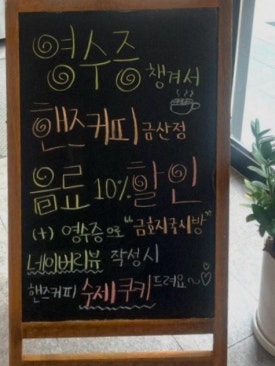 영수증 챙겨서
핸즈커피 금산점
음료 10% 할인
(+) 영수증으로 "금호지국시방"
네이버리뷰 작성시
핸즈커피 수제쿠키 드려요~♡